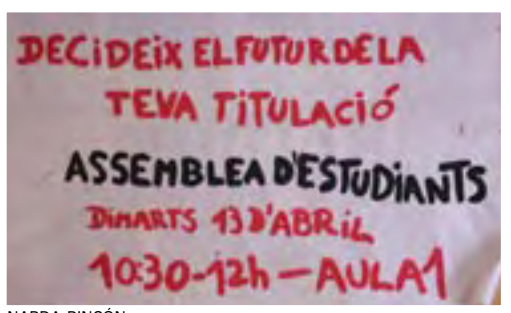 DECiDEiX EL FUTUR DE LA
TEVA TiTULACiÓ
ASSEMBLEA D'ESTUDiANTS
DiMARTS 13 D'ABRiL
10:30-12h - AULA 1